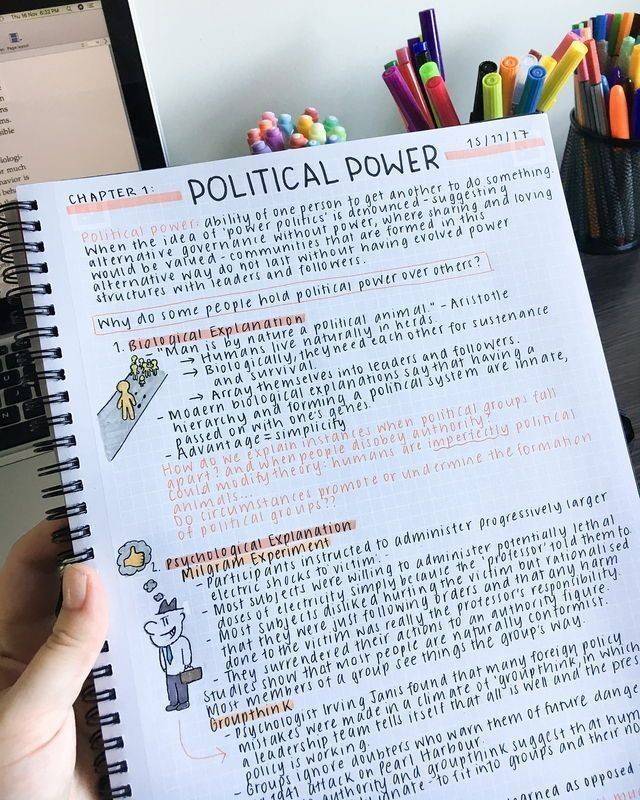 Thu 16 Nov 6:32 PM
CHAPTER 1:
POLITICAL POWER
15/11/17
Political power: ability of one person to get another to do something.
When the idea of 'power politics' is denounced - suggesting
alternative governance without power, where sharing and loving
would be valued - communities that are formed in this
alternative way do not last without having evolved power
structures with leaders and followers.
Why do some people hold political power over others?
1. Biological Explanation
- "Man is by nature a political animal." - Aristotle
→ Humans live naturally in herds.
→ Biologically, they need each other for sustenance
and survival.
→ Array themselves into leaders and followers.
- Modern biological explanations say that having a
hierarchy and forming a political system are innate,
passed on with one's genes.
- Advantage = simplicity
How do we explain instances when political groups fall
apart? and when people disobey authority?
Could modify theory: humans are imperfectly political
animals...
Do circumstances promote or undermine the formation
of political groups??
Psychological Explanation
Milgram Experiment
- Participants instructed to administer progressively larger
electric shocks to 'victim'.
- Most subjects were willing to administer potentially lethal
doses of electricity simply because the 'professor' told them to.
- Most subjects disliked hurting the victim but rationalised
that they were just following orders and that any harm
done to the victim was really the professor's responsibility.
- They surrendered their actions to an authority figure.
Studies show that most people are naturally conformist.
Most members of a group see things the group's way.
Groupthink
- Psychologist Irving Janis found that many foreign policy
mistakes were made in a climate of 'groupthink', in which
a leadership team tells itself that all is well and the
policy is working.
- Groups ignore doubters who warn them of future
1941 attack on Pearl Harbour.
authority and groupthink suggest that
innate - to fit into groups and their
as opposed